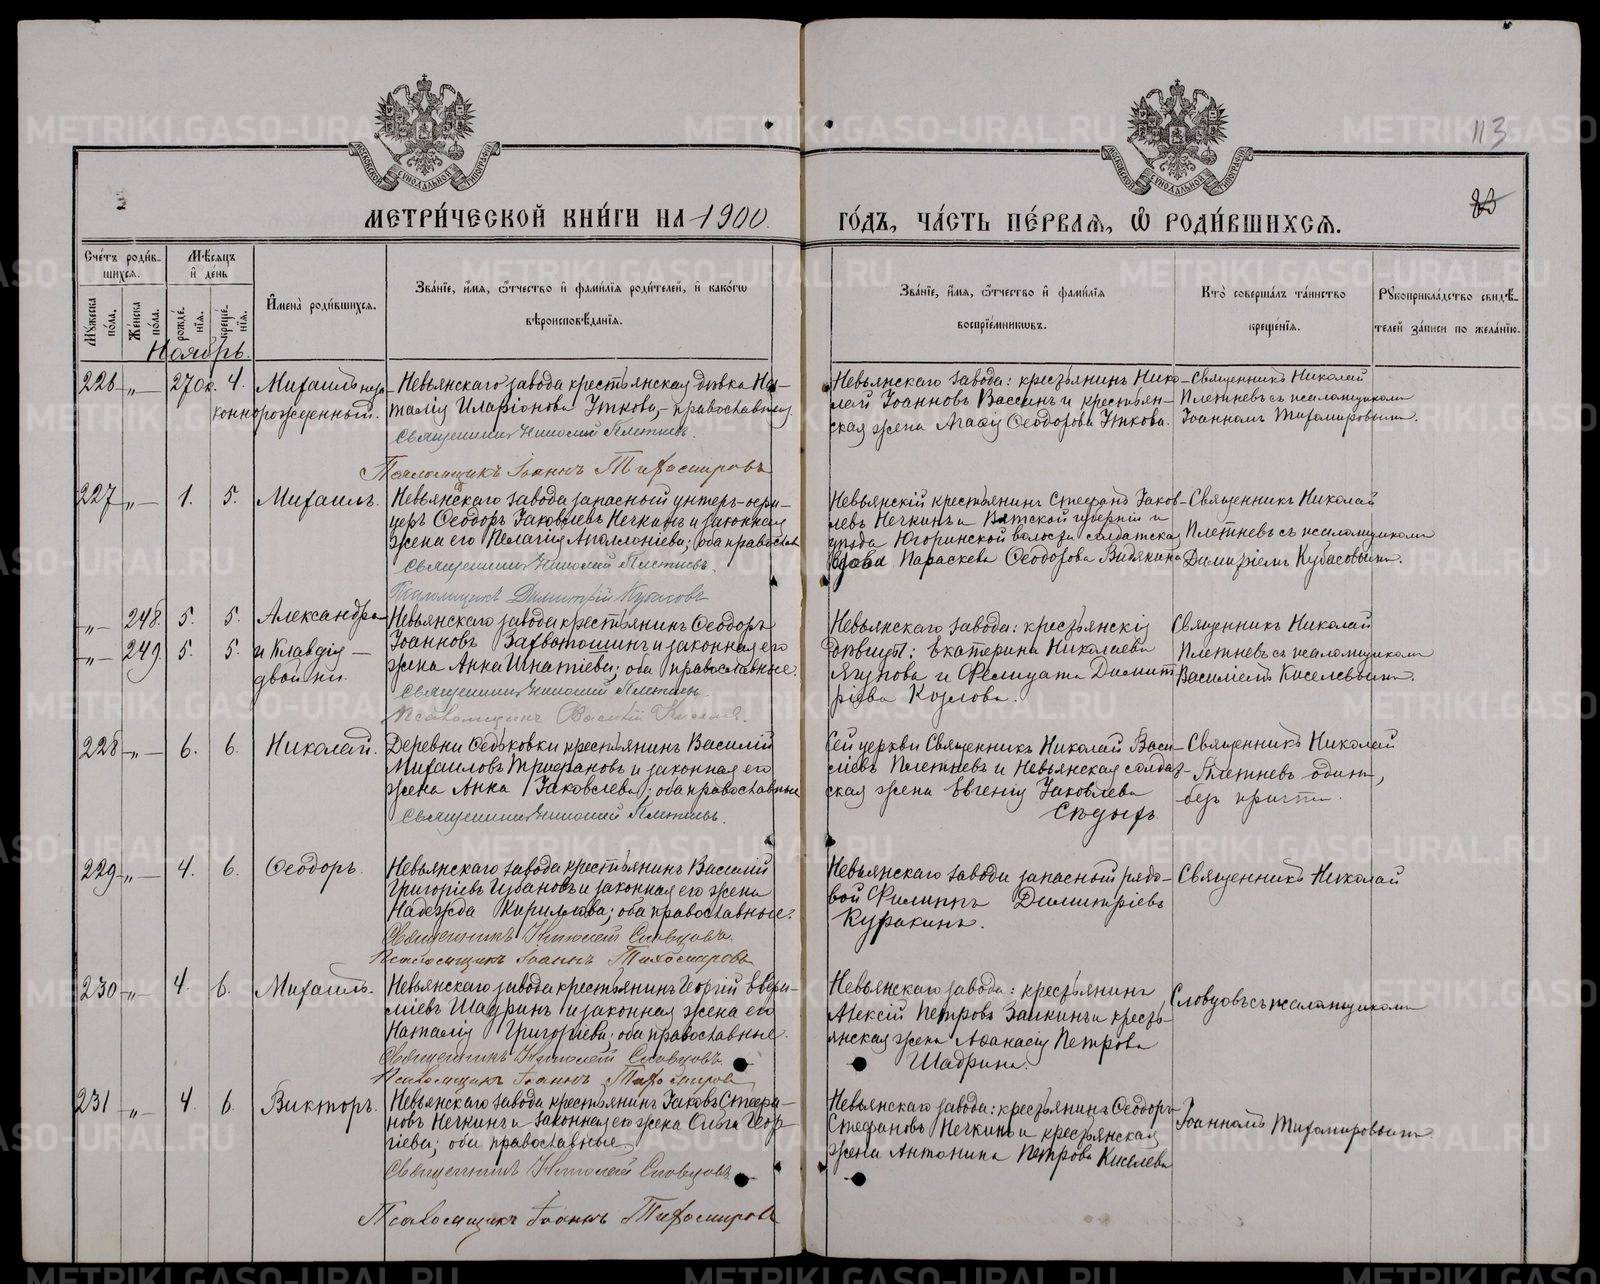 113
МЕТРИ́ЧЕСКОЙ КНИ́ГИ НА 1900
ГО́ДЪ, ЧА́СТЬ ПЕ́РВАЯ, Ѡ РОДИ́ВШИХСЯ.
Сче́тъ роди́в-
шихся.
Мѣ́сяцъ
и҆ де́нь
Мꙋ́жеска
по́ла.
Же́нска
по́ла.
рожде́-
нїя.
креще́-
нїя.
И҆мена̀ роди́вшихся.
Зва́нїе, и҆́мя, ѻ҆́тчество и҆ фами́лїя роди́телей, и҆ како́гѡ
вѣроисповѣ́данїя.
Зва́нїе, и҆́мя, ѻ҆́тчество и҆ фами́лїя
воспрїе́мникѡвъ.
Кто̀ соверша́лъ та́инство
креще́нїя.
Рꙋкоприкла́дство свидѣ́-
телей за́писи по жела́нїю.
Ноябрь.
226 „ 27 ок. 4. Михаилъ неза-
коннорожденный.
Невьянскаго завода крестьянская дѣвка На-
талія Иларіонова Уткова, православная.
Священникъ Николай Плетневъ.
Псаломщикъ Іоаннъ Тихомировъ
Невьянскаго завода: крестьянинъ Нико-
лай Іоанновъ Вассинъ и крестьян-
ская жена Агафія Ѳеодорова Уткова.
Священникъ Николай
Плетневъ съ псаломщикомъ
Іоанномъ Тихомировымъ.
227 „ 1. 5. Михаилъ.
Невьянскаго завода запасный унтеръ-офи-
церъ Ѳеодоръ Іаковлевъ Нечкинъ и законная
жена его Пелагія Аполлоніева; оба православ
Священникъ Николай Плетневъ.
Псаломщикъ Димитрій Кубасовъ
Невьянскій крестьянинъ Стефанъ Іаков-
левъ Нечкинъ и Вятской губерніи и
уѣзда Югоринской волости солдатская
вдова Параскева Ѳеодорова Видякина
Священникъ Николай
Плетневъ съ псаломщикомъ
Димитріемъ Кубасовымъ.
„ 248. 5. 5. Александра
„ 249. 5. 5. и Клавдія —
двойни.
Невьянскаго завода крестьянинъ Ѳеодоръ
Іоанновъ Захватошинъ и законная его
жена Анна Игнатіева; оба православные.
Священникъ Николай Плетневъ.
Псаломщикъ Василій Киселевъ.
Невьянскаго завода: крестьянскія
дѣвицы: Екатерина Николаева
Ягупова и Фелицата Димит
ріева Козлова.
Священникъ Николай
Плетневъ съ псаломщикомъ
Василіемъ Киселевымъ.
228 „ 6. 6. Николай.
Деревни Ѳедьковки крестьянинъ Василій
Михаиловъ Трифановъ и законная его
жена Анна Іаковлева; оба православные
Священникъ Николай Плетневъ.
Сей церкви Священникъ Николай Васи-
ліевъ Плетневъ и Невьянская солдат-
ская жена Евгенія Іаковлева
Сѣдыхъ.
Священникъ Николай
Плетневъ одинъ,
безъ причта.
229 „ 4. 6. Ѳеодоръ.
Невьянскаго завода крестьянинъ Василій
Григоріевъ Губановъ и законная его жена
Надежда Кириллова; оба православные.
Священникъ Николай Словцовъ.
Псаломщикъ Іоаннъ Тихомировъ
Невьянскаго завода запасный рядо-
вой Филиппъ Димитріевъ
Куракинъ.
Священникъ Николай
230 „ 4. 6. Михаилъ.
Невьянскаго завода крестьянинъ Георгій Евфи-
міевъ Шадринъ и законная жена его
Наталія Григоріева; оба православные.
Священникъ Николай Словцовъ.
Псаломщикъ Іоаннъ Тихомировъ
Невьянскаго завода: крестьянинъ
Алексій Петровъ Заикинъ и кресть-
янская жена Аѳанасія Петрова
Шадрина.
Словцовъ съ псаломщикомъ
231 „ 4. 6. Викторъ.
Невьянскаго завода крестьянинъ Іаковъ Стефа-
новъ Нечкинъ и законная его жена Ольга Геор-
гіева; оба православные
Священникъ Николай Словцовъ.
Псаломщикъ Іоаннъ Тихомировъ
Невьянскаго завода: крестьянинъ Ѳеодоръ
Стефановъ Нечкинъ и крестьянская
жена Антонина Петрова Киселева
Іоанномъ Тихомировымъ.
METRIKI.GASO-URAL.RU